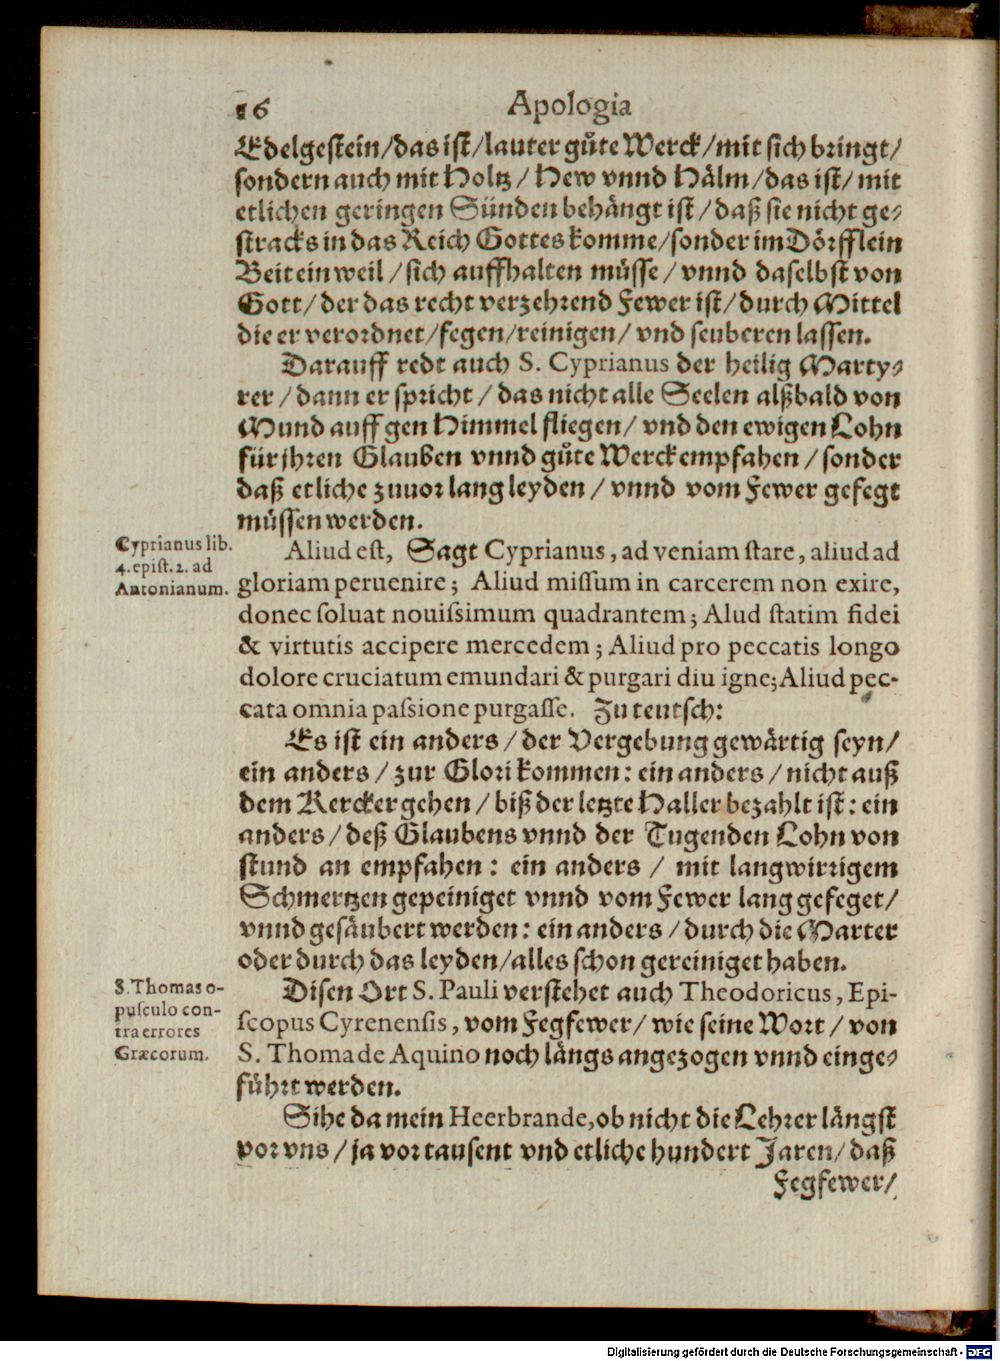 16 Apologia
Edelgestein/das ist/lauter gůte Werck/mit sich bringt/
sondern auch mit Holtz / Hew vnnd Hälm/das ist/ mit
etlichen geringen Sünden behängt ist / daß sie nicht ge-
stracks in das Reich Gottes komme/sonder im Dörfflein
Beiteinweil / sich auffhalten müsse / vnnd daselbst von
Gott/ der das recht verzehrend Fewer ist/ durch Mittel
die er verordnet/fegen/reinigen/ vnd seuberen lassen.
Darauff redt auch S. Cyprianus der heilig Marty-
rer / dann er spricht / das nicht alle Seelen alßbald von
Mund auff gen Himmel fliegen/ vnd den ewigen Lohn
für jhren Glauben vnnd gůte Werck empfahen / sonder
daß etliche zuuor lang leyden / vnnd vom Fewer gefegt
müssen werden.
Cyprianus lib.
4. epist. 2. ad
Antonianum.
Aliud est, Sagt Cyprianus, ad veniam stare, aliud ad
gloriam peruenire; Aliud missum in carcerem non exire,
donec soluat nouissimum quadrantem; Alud statim fidei
& virtutis accipere mercedem; Aliud pro peccatis longo
dolore cruciatum emundari & purgari diu igne; Aliud pec-
cata omnia passione purgasse. Zu teutsch:
Es ist ein anders / der Vergebung gewärtig seyn/
ein anders / zur Glori kommen: ein anders / nicht auß
dem Kercker gehen / biß der letzte Haller bezahlt ist: ein
anders / deß Glaubens vnnd der Tugenden Lohn von
stund an empfahen: ein anders / mit langwirrigem
Schmertzen gepeiniget vnnd vom Fewer lang gefeget/
vnnd gesäubert werden: ein anders / durch die Marter
oder durch das leyden/alles schon gereiniget haben.
S. Thomas o-
pusculo con-
tra errores
Græcorum.
Disen Ort S. Pauli verstehet auch Theodoricus, Epi-
scopus Cyrenensis, vom Fegfewer/ wie seine Wort / von
S. Thoma de Aquino noch längs angezogen vnnd einge-
führt werden.
Sihe da mein Heerbrande, ob nicht die Lehrer längst
vor vns / ja vor tausent vnd etliche hundert Jaren/ daß
Fegfewer/
Digitalisierung gefördert durch die Deutsche Forschungsgemeinschaft - DFG